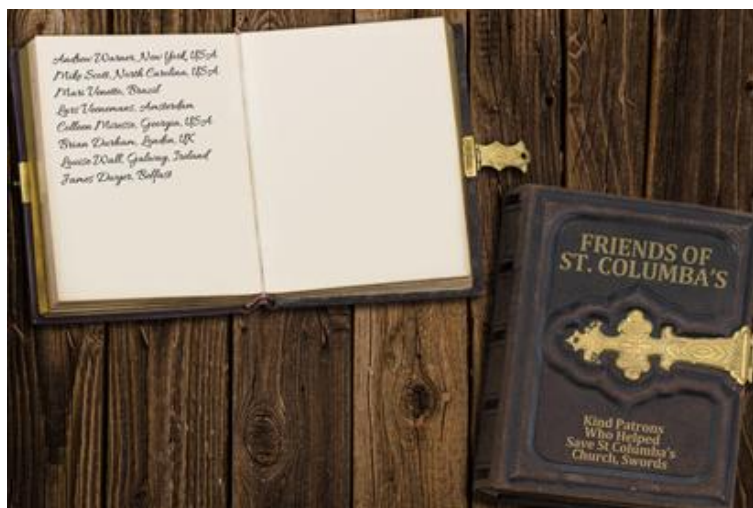 Andrew Warner, New York, USA
Mike Scott, North Carolina, USA
Mari Venetto, Brazil
Lars Veenemans, Amsterdam
Colleen Georgia, USA
Brian Durham, London, UK
Louise Wall, Galway, Ireland
James Belfast
FRIENDS OF
ST. COLUMBA'S
Kind Patrons
Who Helped
Save St Columba's
Church, Swords